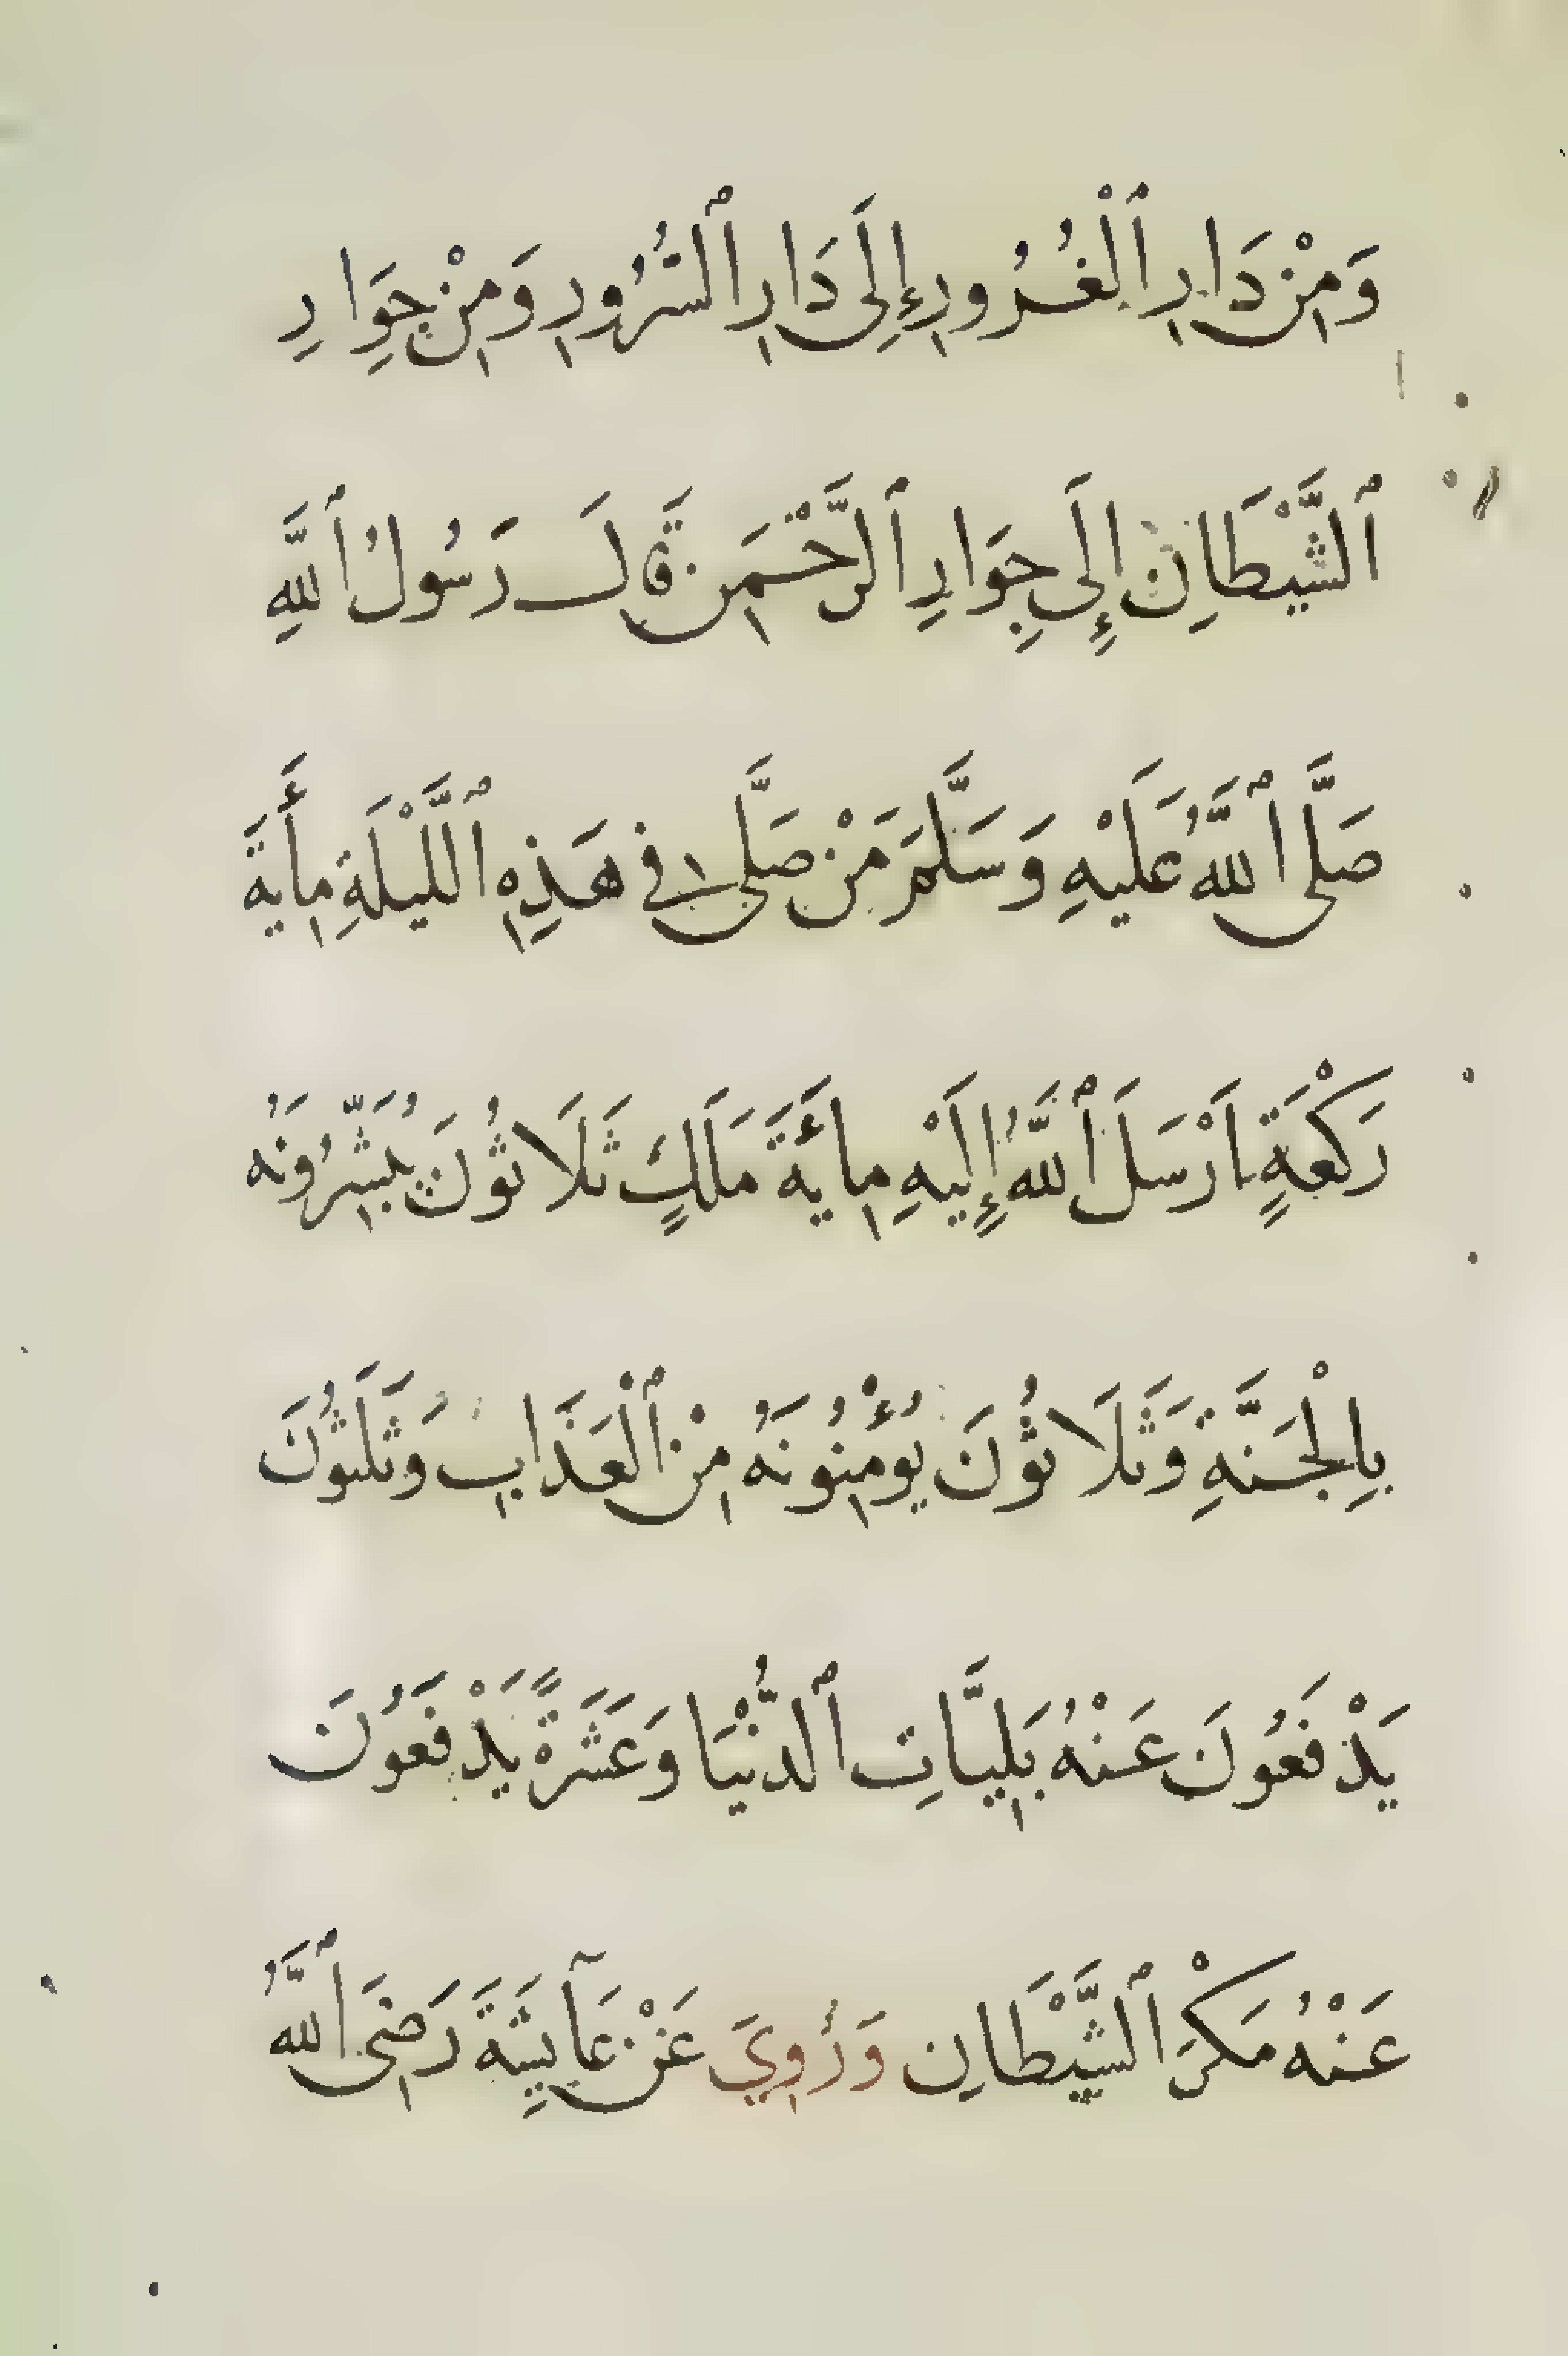 وَمِنْ دَارِ ٱلْغُرُورِ إِلَى دَارِ ٱلسُّرُورِ وَمِنْ جِوَارِ
ٱلشَّيْطَانِ إِلَى جِوَارِ ٱلرَّحْمَنِ قَالَ رَسُولُ ٱللَّهِ
صَلَّى ٱللَّهُ عَلَيْهِ وَسَلَّمَ مَنْ صَلَّى فِي هَذِهِ ٱللَّيْلَةِ مِأَيَةَ
رَكْعَةٍ اَرْسَلَ ٱللَّهُ إِلَيْهِ مِأَيَةَ مَلَكٍ ثَلَاثُونَ يُبَشِّرُونَهُ
بِالْجَنَّةِ وَثَلَاثُونَ يُؤْمِنُونَهُ مِنْ ٱلْعَذَابِ وَثَلَثُونَ
يَدْفَعُونَ عَنْهُ بَلِيَّاتِ ٱلدُّنْيَا وَعَشَرَةً يَدْفَعُونَ
عَنْهُ مَكْرَ ٱلشَّيْطَانِ وَرُوِيَ عَنْ عَآيِشَةَ رَضِىَ ٱللَّهُ